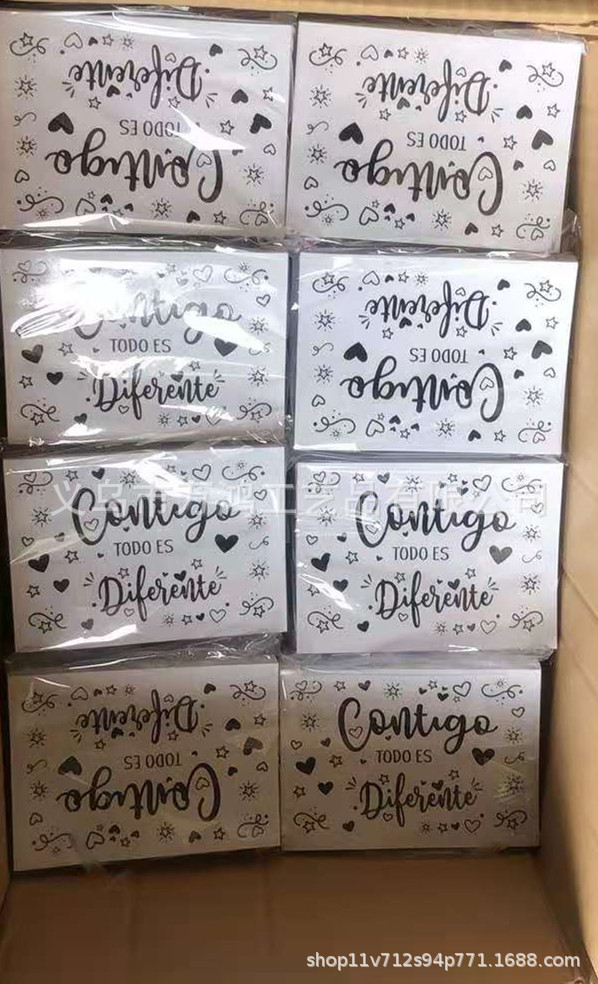 Contigo
TODO ES
Diferente
Contigo
TODO ES
Diferente
Contigo
TODO ES
Diferente
Contigo
TODO ES
Diferente
Contigo
TODO ES
Diferente
Contigo
TODO ES
Diferente
Contigo
TODO ES
Diferente
Contigo
TODO ES
Diferente
工艺品有限公司
shop11v712s94p771.1688.com